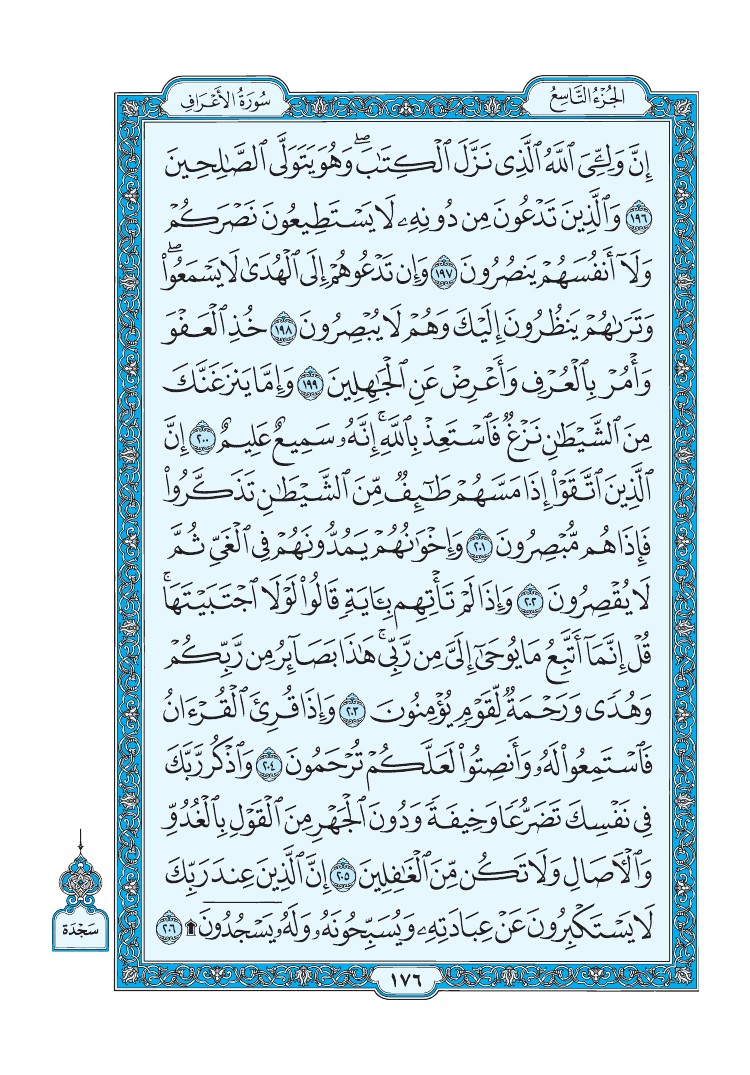 الجُزْءُ التَّاسِعُ
سُورَةُ الأَعْرَافِ
إِنَّ وَلِـِّۧيَ ٱللَّهُ ٱلَّذِى نَزَّلَ ٱلْكِتَٰبَۖ وَهُوَ يَتَوَلَّى ٱلصَّٰلِحِينَ
١٩٦ وَٱلَّذِينَ تَدْعُونَ مِن دُونِهِۦ لَا يَسْتَطِيعُونَ نَصْرَكُمْ
وَلَآ أَنفُسَهُمْ يَنصُرُونَ ١٩٧ وَإِن تَدْعُوهُمْ إِلَى ٱلْهُدَىٰ لَا يَسْمَعُوا۟ۖ
وَتَرَىٰهُمْ يَنظُرُونَ إِلَيْكَ وَهُمْ لَا يُبْصِرُونَ ١٩٨ خُذِ ٱلْعَفْوَ
وَأْمُرْ بِٱلْعُرْفِ وَأَعْرِضْ عَنِ ٱلْجَٰهِلِينَ ١٩٩ وَإِمَّا يَنزَغَنَّكَ
مِنَ ٱلشَّيْطَٰنِ نَزْغٌ فَٱسْتَعِذْ بِٱللَّهِۚ إِنَّهُۥ سَمِيعٌ عَلِيمٌ ٢٠٠ إِنَّ
ٱلَّذِينَ ٱتَّقَوْا۟ إِذَا مَسَّهُمْ طَٰٓئِفٌ مِّنَ ٱلشَّيْطَٰنِ تَذَكَّرُوا۟
فَإِذَا هُم مُّبْصِرُونَ ٢٠١ وَإِخْوَٰنُهُمْ يَمُدُّونَهُمْ فِى ٱلْغَىِّ ثُمَّ
لَا يُقْصِرُونَ ٢٠٢ وَإِذَا لَمْ تَأْتِهِم بِـَٔايَةٍ قَالُوا۟ لَوْلَا ٱجْتَبَيْتَهَاۚ
قُلْ إِنَّمَآ أَتَّبِعُ مَا يُوحَىٰٓ إِلَىَّ مِن رَّبِّىۚ هَٰذَا بَصَآئِرُ مِن رَّبِّكُمْ
وَهُدًى وَرَحْمَةٌ لِّقَوْمٍ يُؤْمِنُونَ ٢٠٣ وَإِذَا قُرِئَ ٱلْقُرْءَانُ
فَٱسْتَمِعُوا۟ لَهُۥ وَأَنصِتُوا۟ لَعَلَّكُمْ تُرْحَمُونَ ٢٠٤ وَٱذْكُر رَّبَّكَ
فِى نَفْسِكَ تَضَرُّعًا وَخِيفَةً وَدُونَ ٱلْجَهْرِ مِنَ ٱلْقَوْلِ بِٱلْغُدُوِّ
وَٱلْءَاصَالِ وَلَا تَكُن مِّنَ ٱلْغَٰفِلِينَ ٢٠٥ إِنَّ ٱلَّذِينَ عِندَ رَبِّكَ
لَا يَسْتَكْبِرُونَ عَنْ عِبَادَتِهِۦ وَيُسَبِّحُونَهُۥ وَلَهُۥ يَسْجُدُونَ ۩ ٢٠٦
سَجْدَة
١٧٦